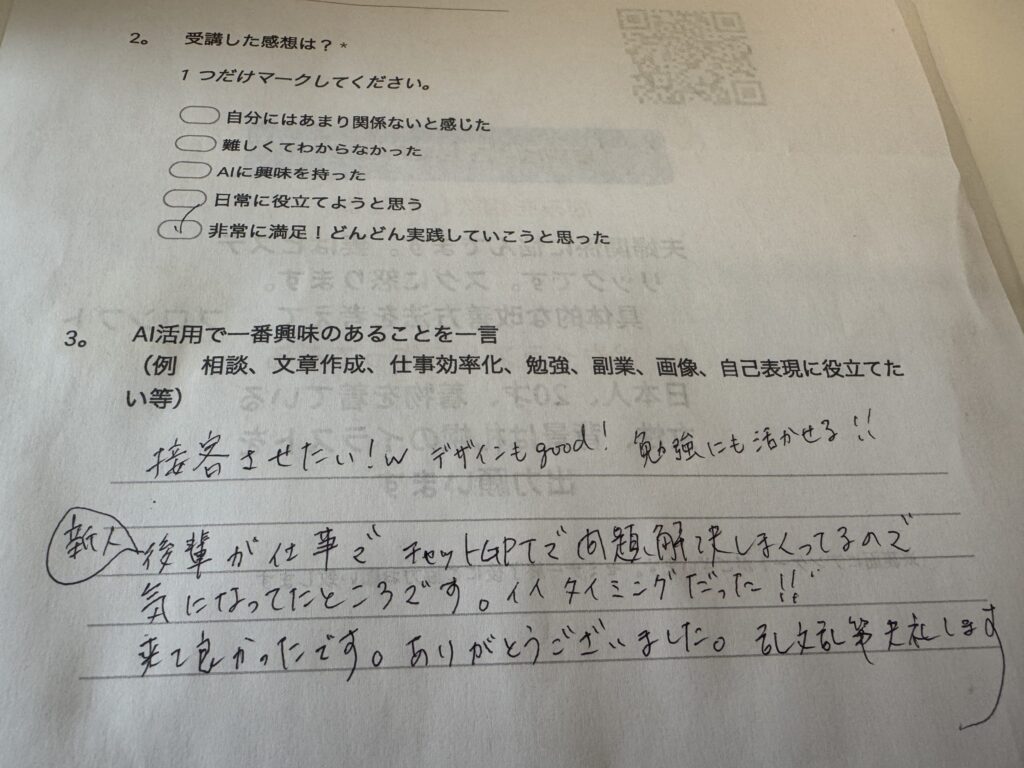 2。 受講した感想は？*
1 つだけマークしてください。
自分にはあまり関係ないと感じた
難しくてわからなかった
AIに興味を持った
日常に役立てようと思う
非常に満足！どんどん実践していこうと思った
3。 AI活用で一番興味のあることを一言
（例 相談、文章作成、仕事効率化、勉強、副業、画像、自己表現に役立てた
い等）
接客させたい！w デザインもgood！ 勉強にも活かせる!!
新人 後輩が仕事で チャットGPTで問題解決しまくってるので
気になってたところです。イイタイミングだった!!
来て良かったです。ありがとうございました。乱文乱筆失礼します